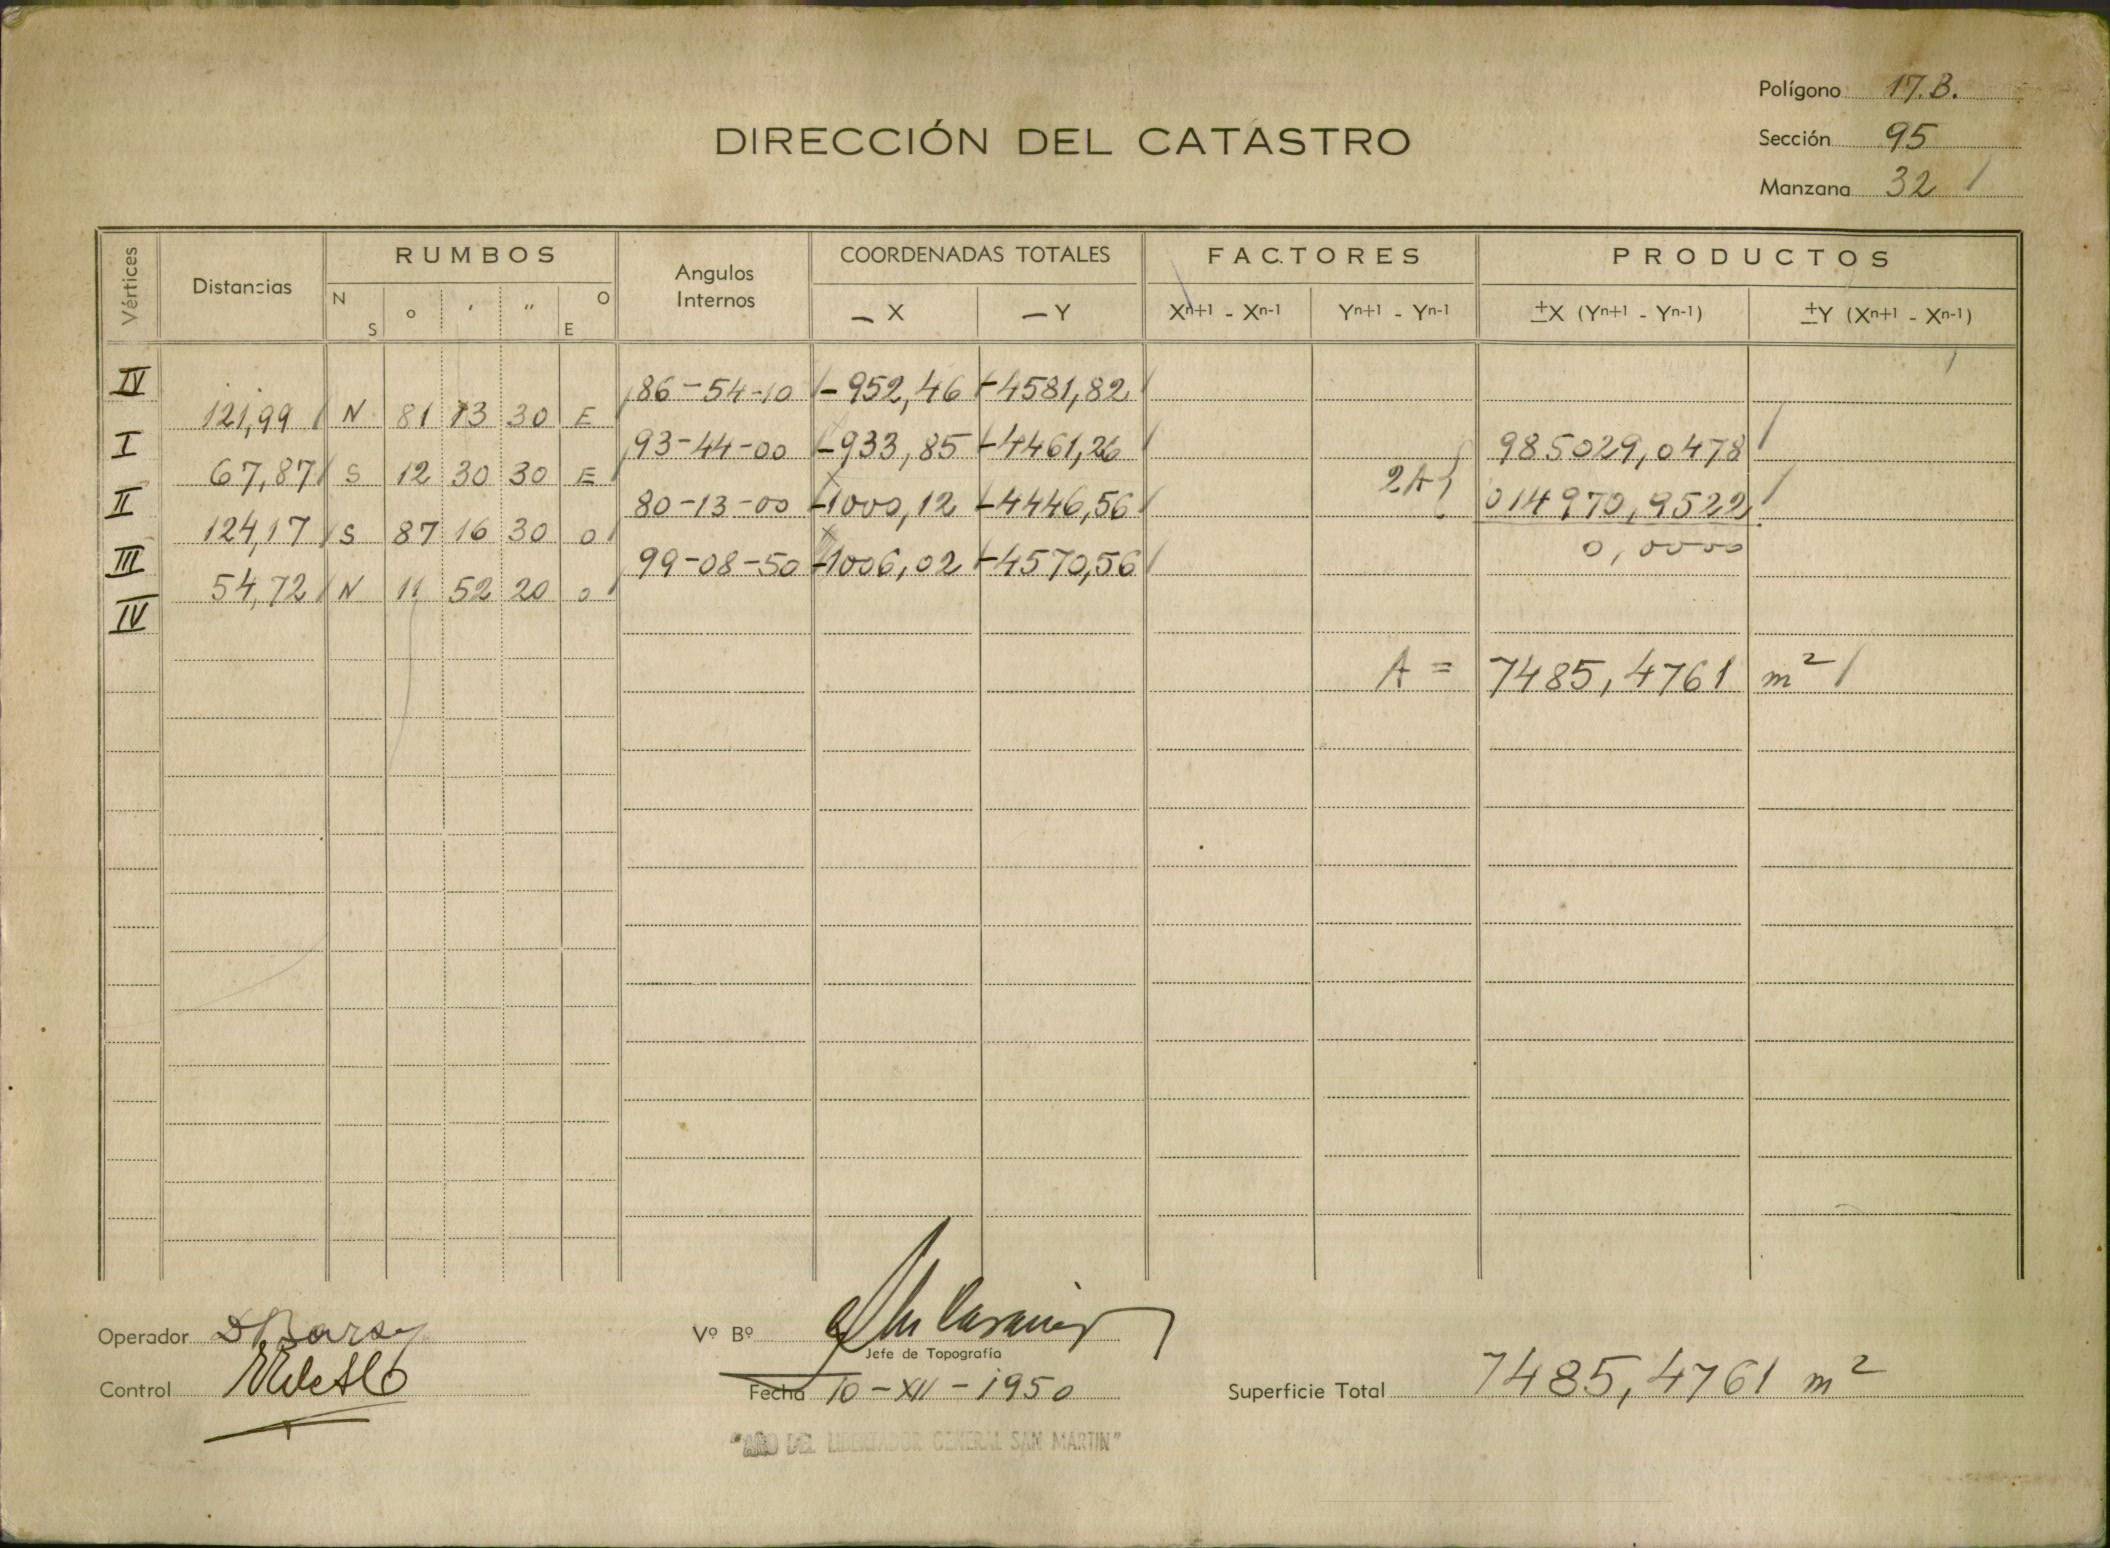 Polígono 17.B.
DIRECCIÓN DEL CATASTRO
Sección 95
Manzana 32 /
Vértices Distancias RUMBOS Angulos Internos COORDENADAS TOTALES FACTORES PRODUCTOS
N S ° ' " O E — X — Y Xn+1 - Xn-1 Yn+1 - Yn-1 ±X (Yn+1 - Yn-1) ±Y (Xn+1 - Xn-1)
IV 86-54-10 -952,46 -4581,82
121,99 N 81 13 30 E
I 93-44-00 -933,85 -4461,26 985029,0478
67,87 S 12 30 30 E
2A
II 80-13-00 -1000,12 -4446,56 014970,9522
124,17 S 87 16 30 O 0,0000
III 99-08-50 -1006,02 -4570,56
54,72 N 11 52 20 O
IV
A = 7485,4761 m²
Operador
Vº Bº
Jefe de Topografía
Control
Fecha 10-XII-1950
Superficie Total 7485,4761 m²
"AÑO DEL LIBERTADOR GENERAL SAN MARTIN"